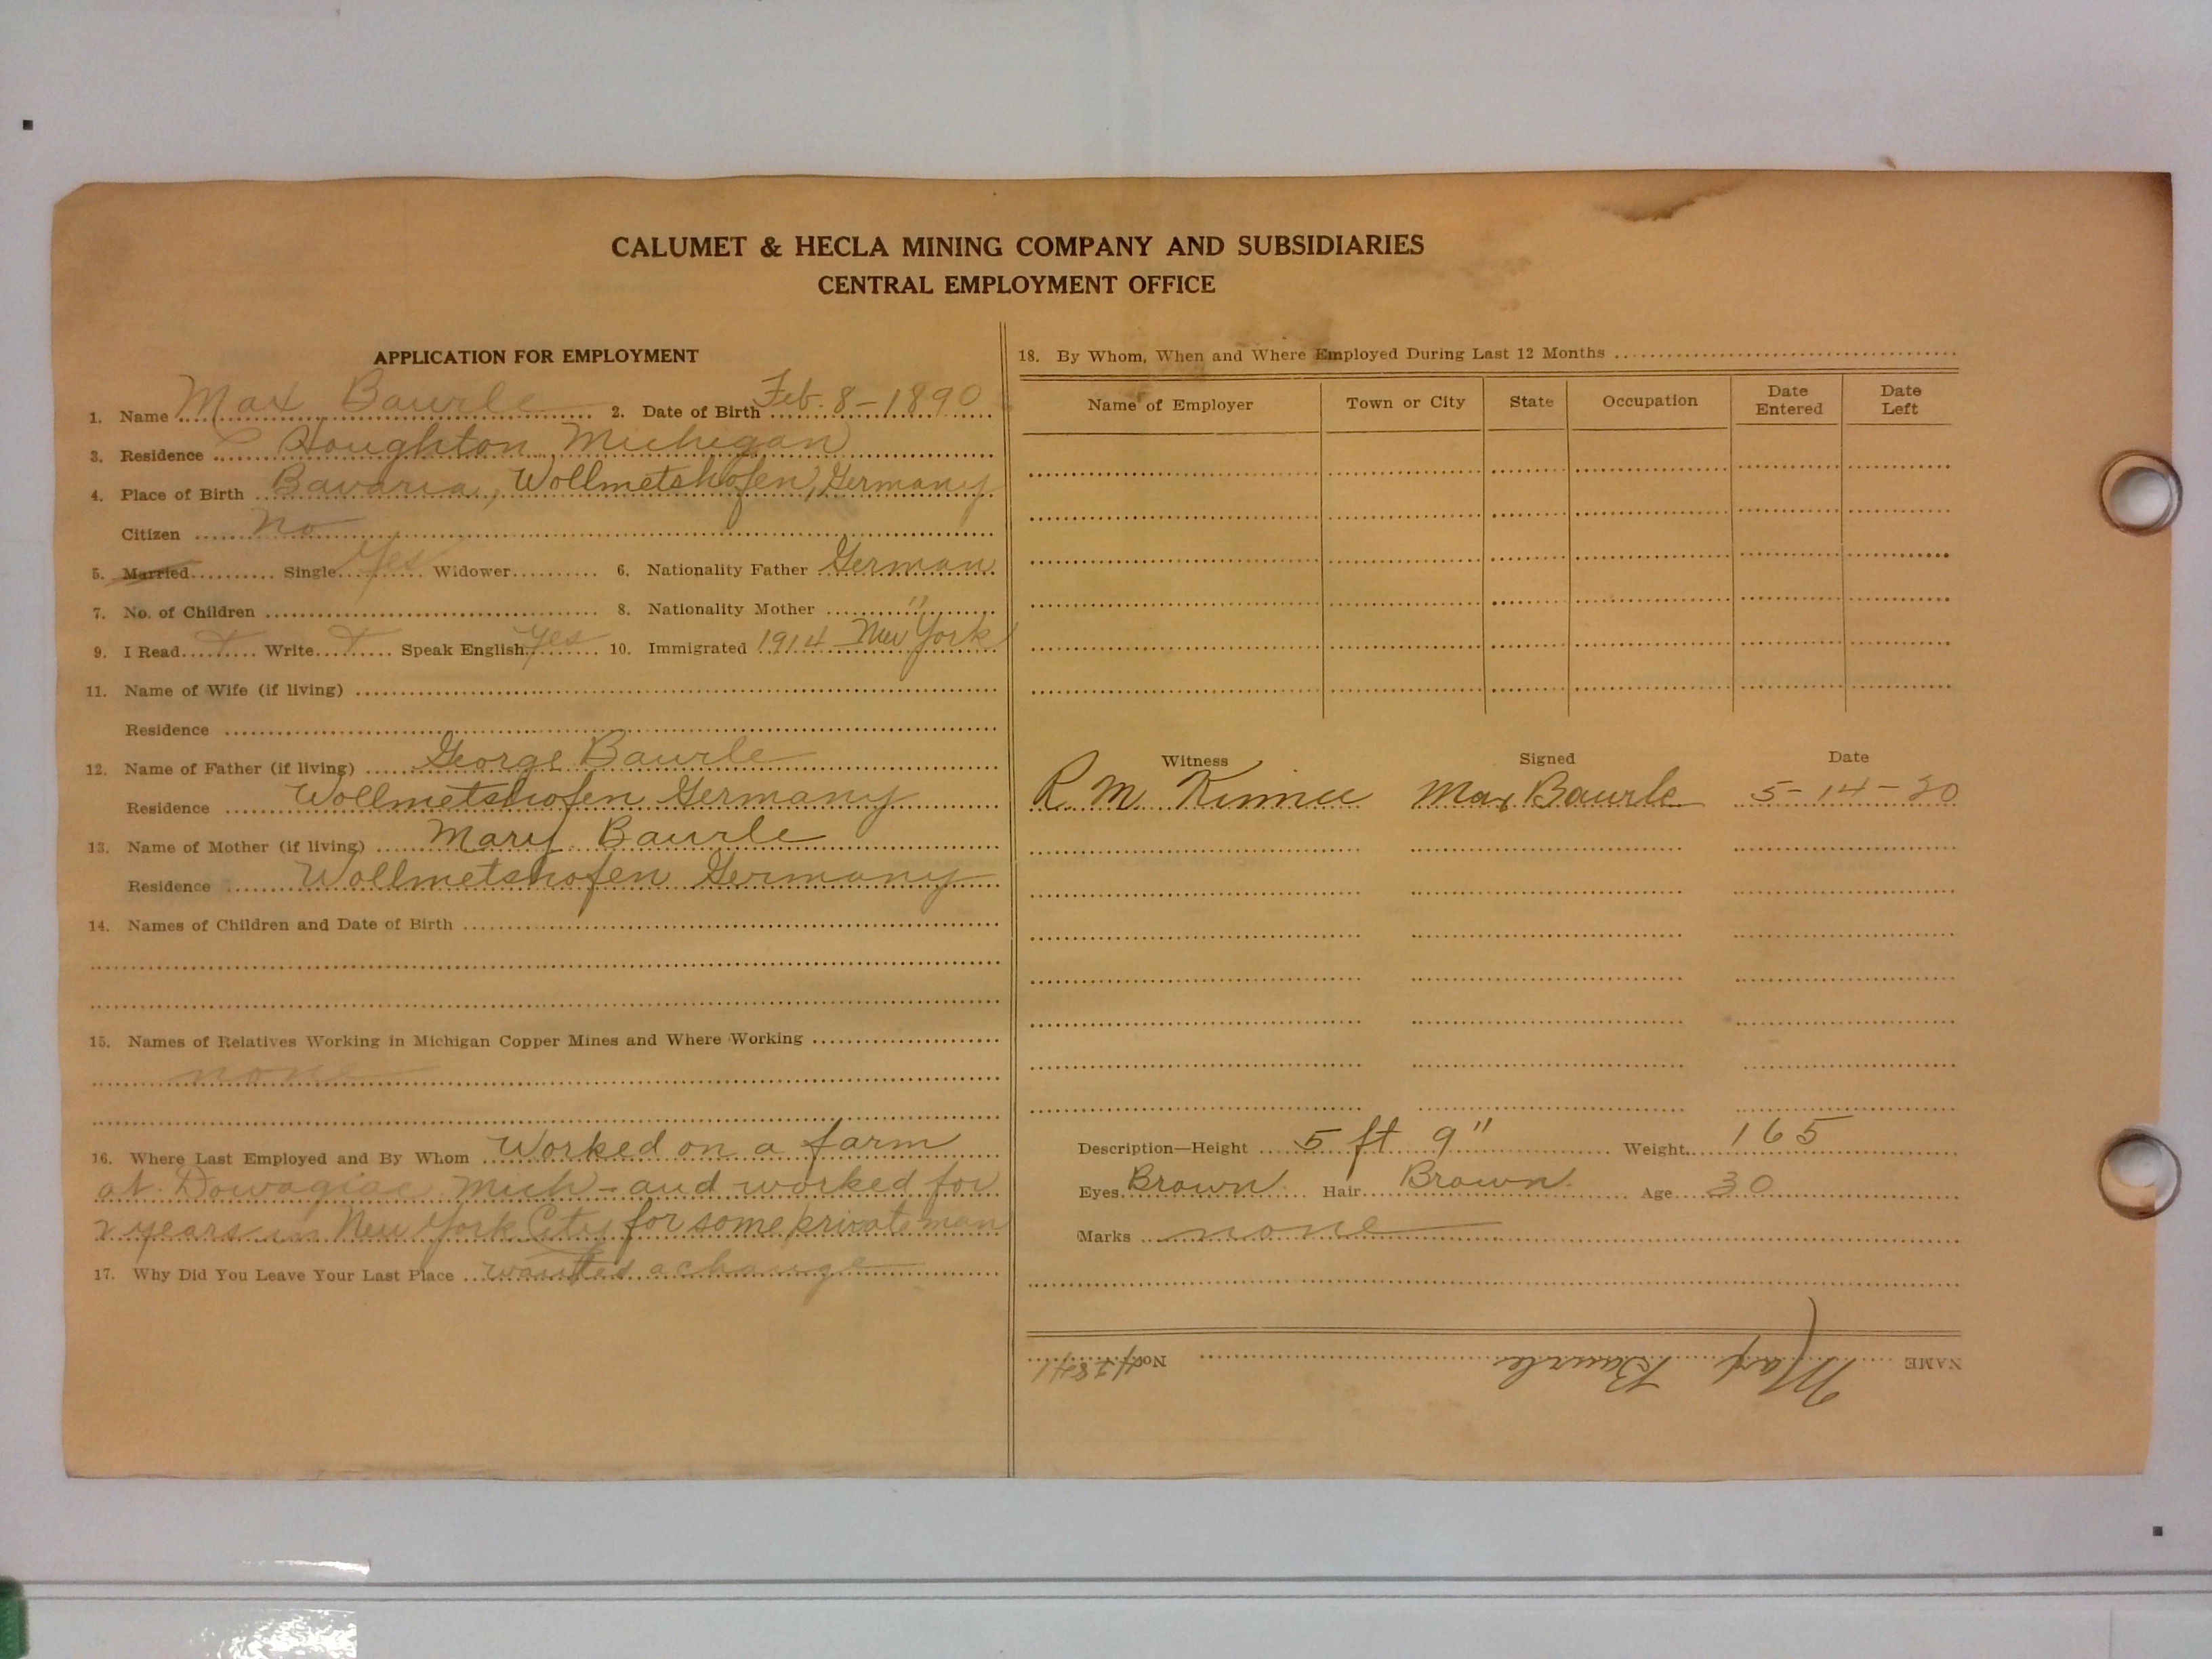 CALUMET & HECLA MINING COMPANY AND SUBSIDIARIES
CENTRAL EMPLOYMENT OFFICE
APPLICATION FOR EMPLOYMENT
1. Name Max Baurle 2. Date of Birth Feb-8-1890
3. Residence Houghton Michigan
4. Place of Birth Bavaria, Wollmetshofen, Germany
Citizen no
5. Married Single Yes Widower 6. Nationality Father German
7. No. of Children 8. Nationality Mother "
9. I Read Write Speak English Yes 10. Immigrated 1914 New York
11. Name of Wife (if living)
Residence
12. Name of Father (if living) George Baurle
Residence Wollmetshofen Germany
13. Name of Mother (if living) Mary Baurle
Residence Wollmetshofen Germany
14. Names of Children and Date of Birth
15. Names of Relatives Working in Michigan Copper Mines and Where Working
none
16. Where Last Employed and By Whom Worked on a farm
at Dowagiac Mich - and worked for
2 years in New York City for some private man
17. Why Did You Leave Your Last Place wanted a change
18. By Whom, When and Where Employed During Last 12 Months
Name of Employer Town or City State Occupation Date Entered Date Left
Witness Signed Date
R. M. Max Baurle 5-14-20
Description—Height 5 ft 9" Weight 165
Eyes Brown Hair Brown Age 30
Marks none
NAME Max Baurle No.